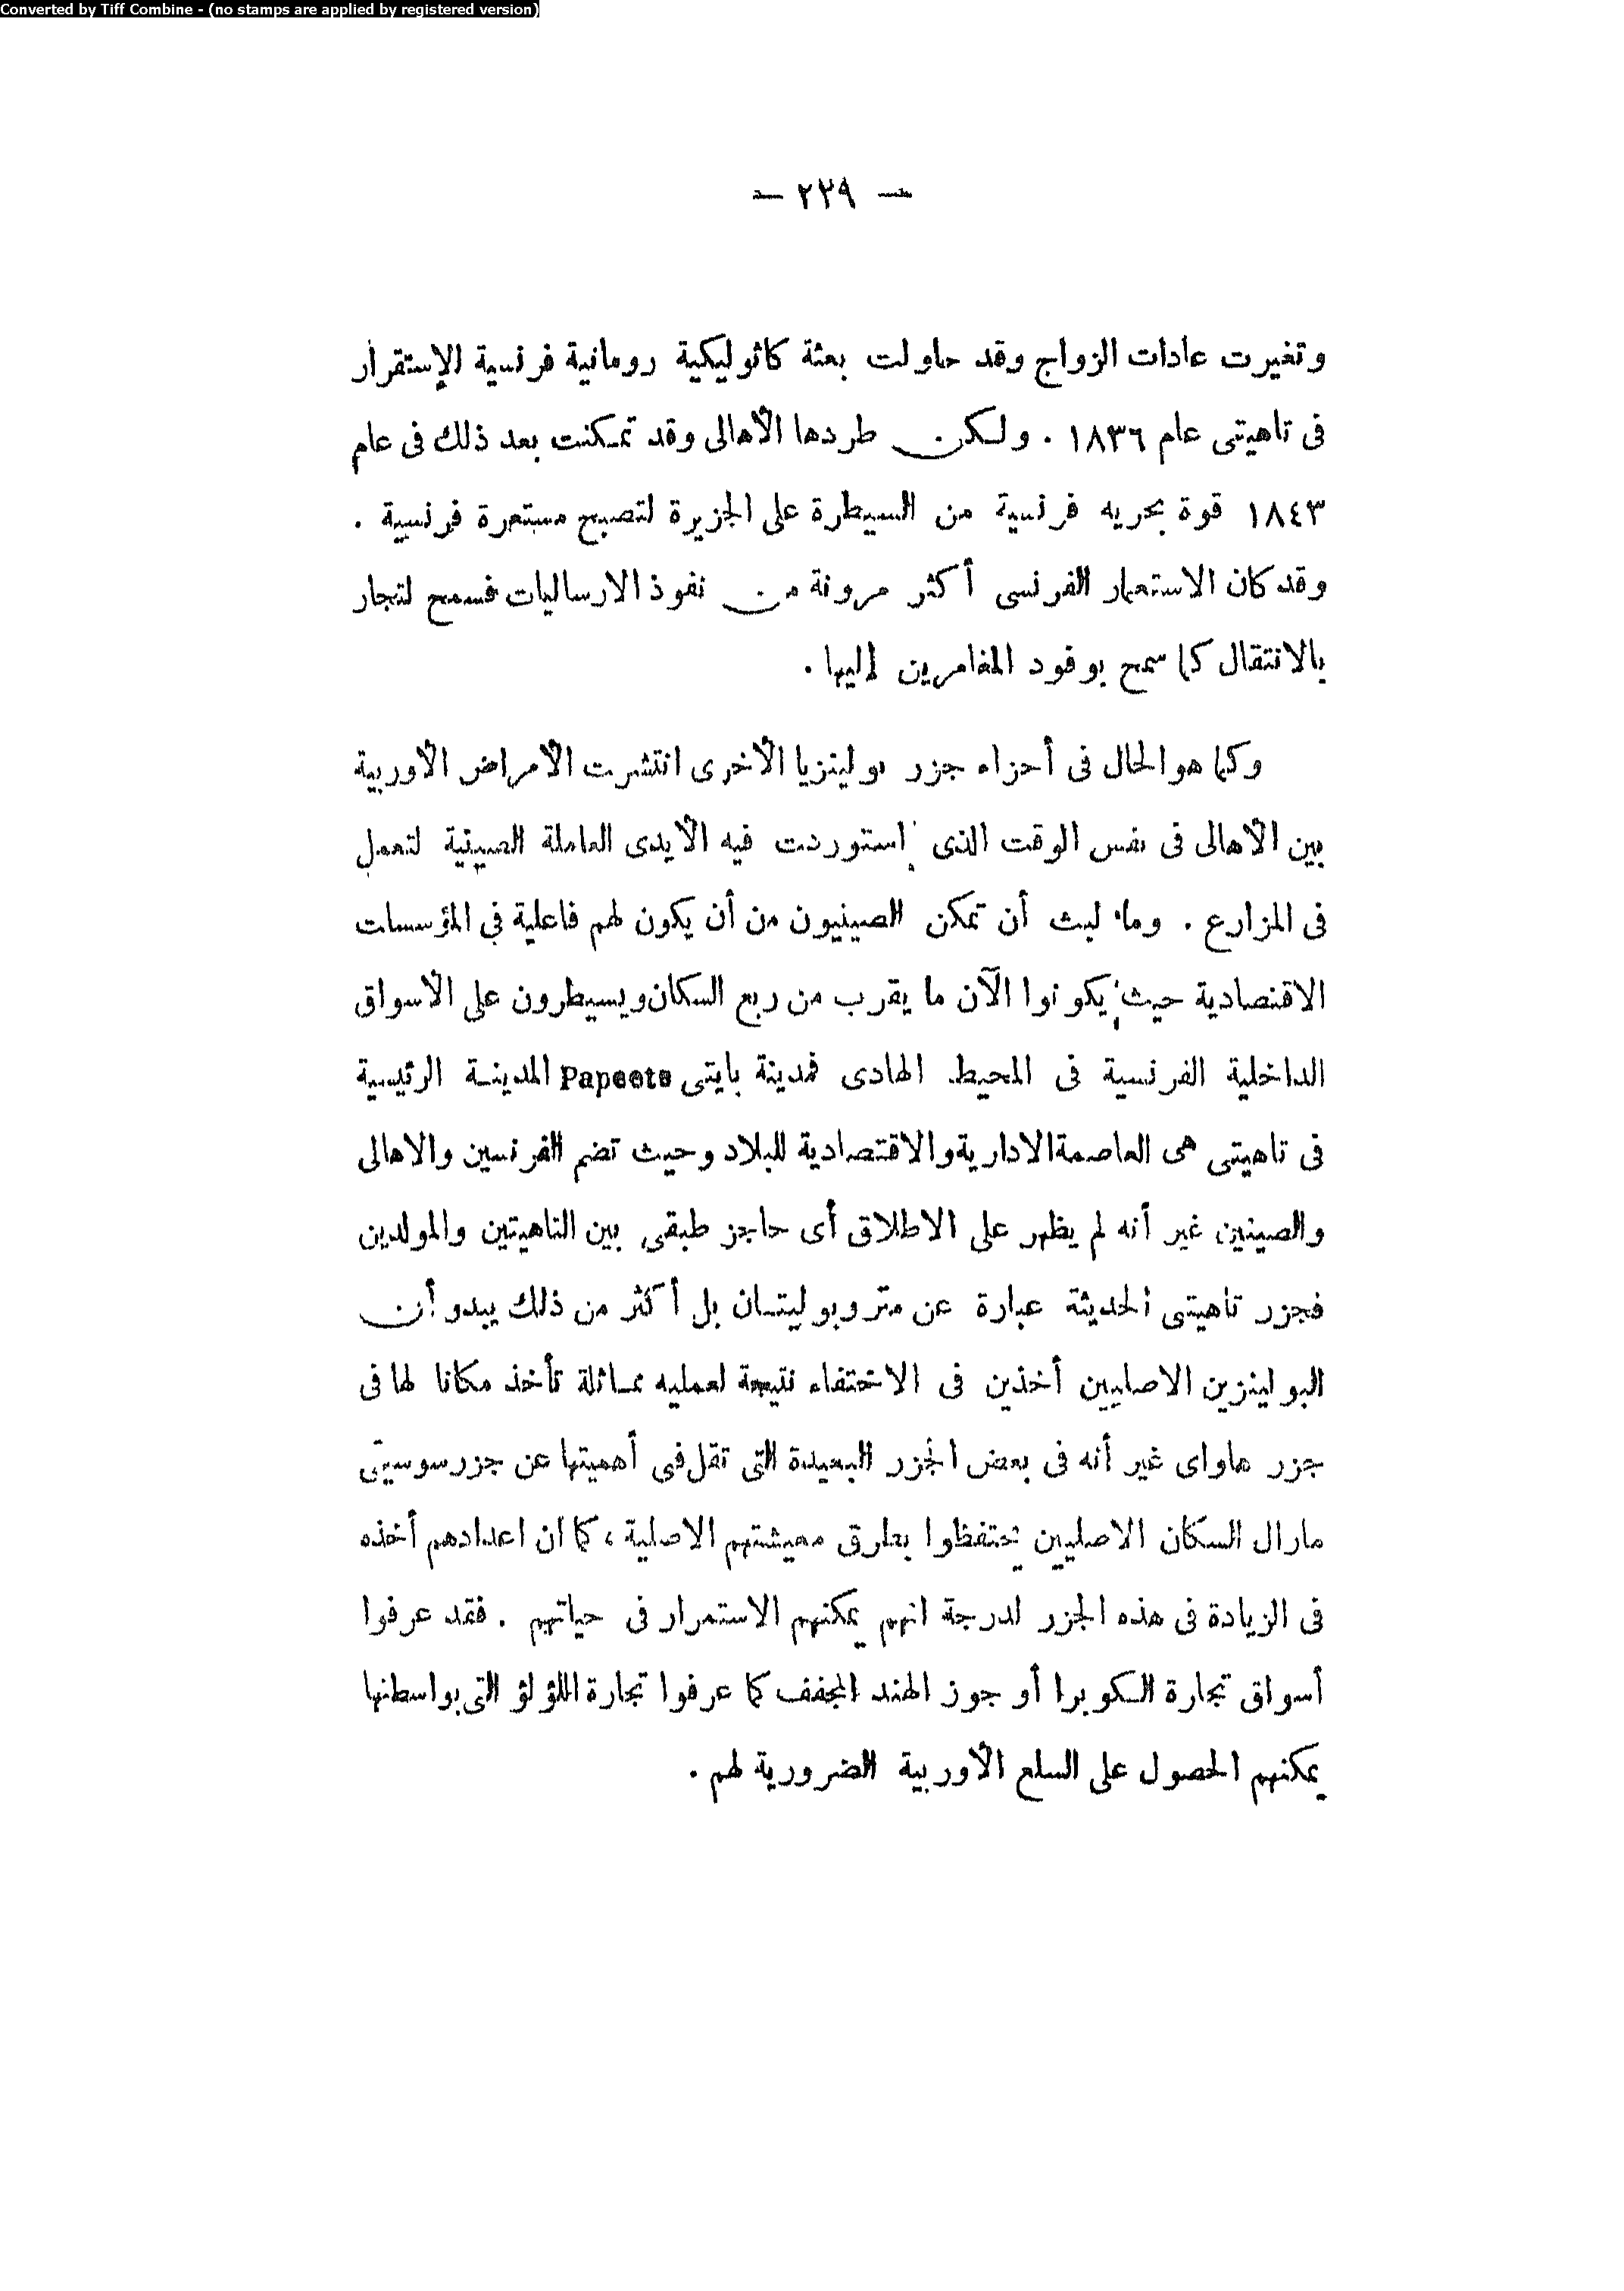 Converted by Tiff Combine - (no stamps are applied by registered version)
— ٢٢٩ —
وتغيرت عادات الزواج وقد حاولت بعثة كاثوليكية رومانية فرنسية الإستقرار
فى تاهيتى عام ١٨٣٦ . ولكن طردها الأهالى وقد تمكنت بعد ذلك فى عام
١٨٤٣ قوة بحريه فرنسية من السيطرة على الجزيرة لتصبح مستعمرة فرنسية .
وقد كان الاستعمار الفرنسى أكثر مرونة من نفوذ الارساليات فسمح لتجار
بالانتقال كما سمح بوفود المغامرين إليها .
وكما هو الحال فى أجزاء جزر بولينزيا الأخرى انتشرت الأمراض الأوربية
بين الأهالى فى نفس الوقت الذى إستوردت فيه الأيدى العاملة الصينية لتعمل
فى المزارع . وما لبث أن تمكن الصينيون من أن يكون لهم فاعلية في المؤسسات
الاقتصادية حيث يكونوا الآن ما يقرب من ربع السكان ويسيطرون على الأسواق
الداخلية الفرنسية فى المحيط الهادى فمدينة بابيتى Papeete المدينة الرئيسية
فى تاهيتى هى العاصمة الادارية والاقتصادية للبلاد وحيث تضم الفرنسين والاهالى
والصينين غير أنه لم يظهر على الاطلاق أى حاجز طبقى بين التاهيتين والمولدين
فجزر تاهيتى الحديثة عبارة عن متروبوليتان بل أكثر من ذلك يبدو أن
البولينزين الاصليين أخذين فى الاختفاء نتيجة لعمليه مماثلة تأخذ مكانا لها فى
جزر هاواى غير أنه فى بعض الجزر البعيدة التى تقل فى أهميتها عن جزر سوسيتى
مازال السكان الاصليين يحتفظوا بطرق معيشتهم الاصلية ، كما ان اعدادهم أخذه
فى الزيادة فى هذه الجزر لدرجة انهم يمكنهم الاستمرار فى حياتهم . فقد عرفوا
أسواق تجارة الكوبرا أو جوز الهند المجفف كما عرفوا تجارة اللؤلؤ التى بواسطتها
يمكنهم الحصول على السلع الأوربية الضرورية لهم .